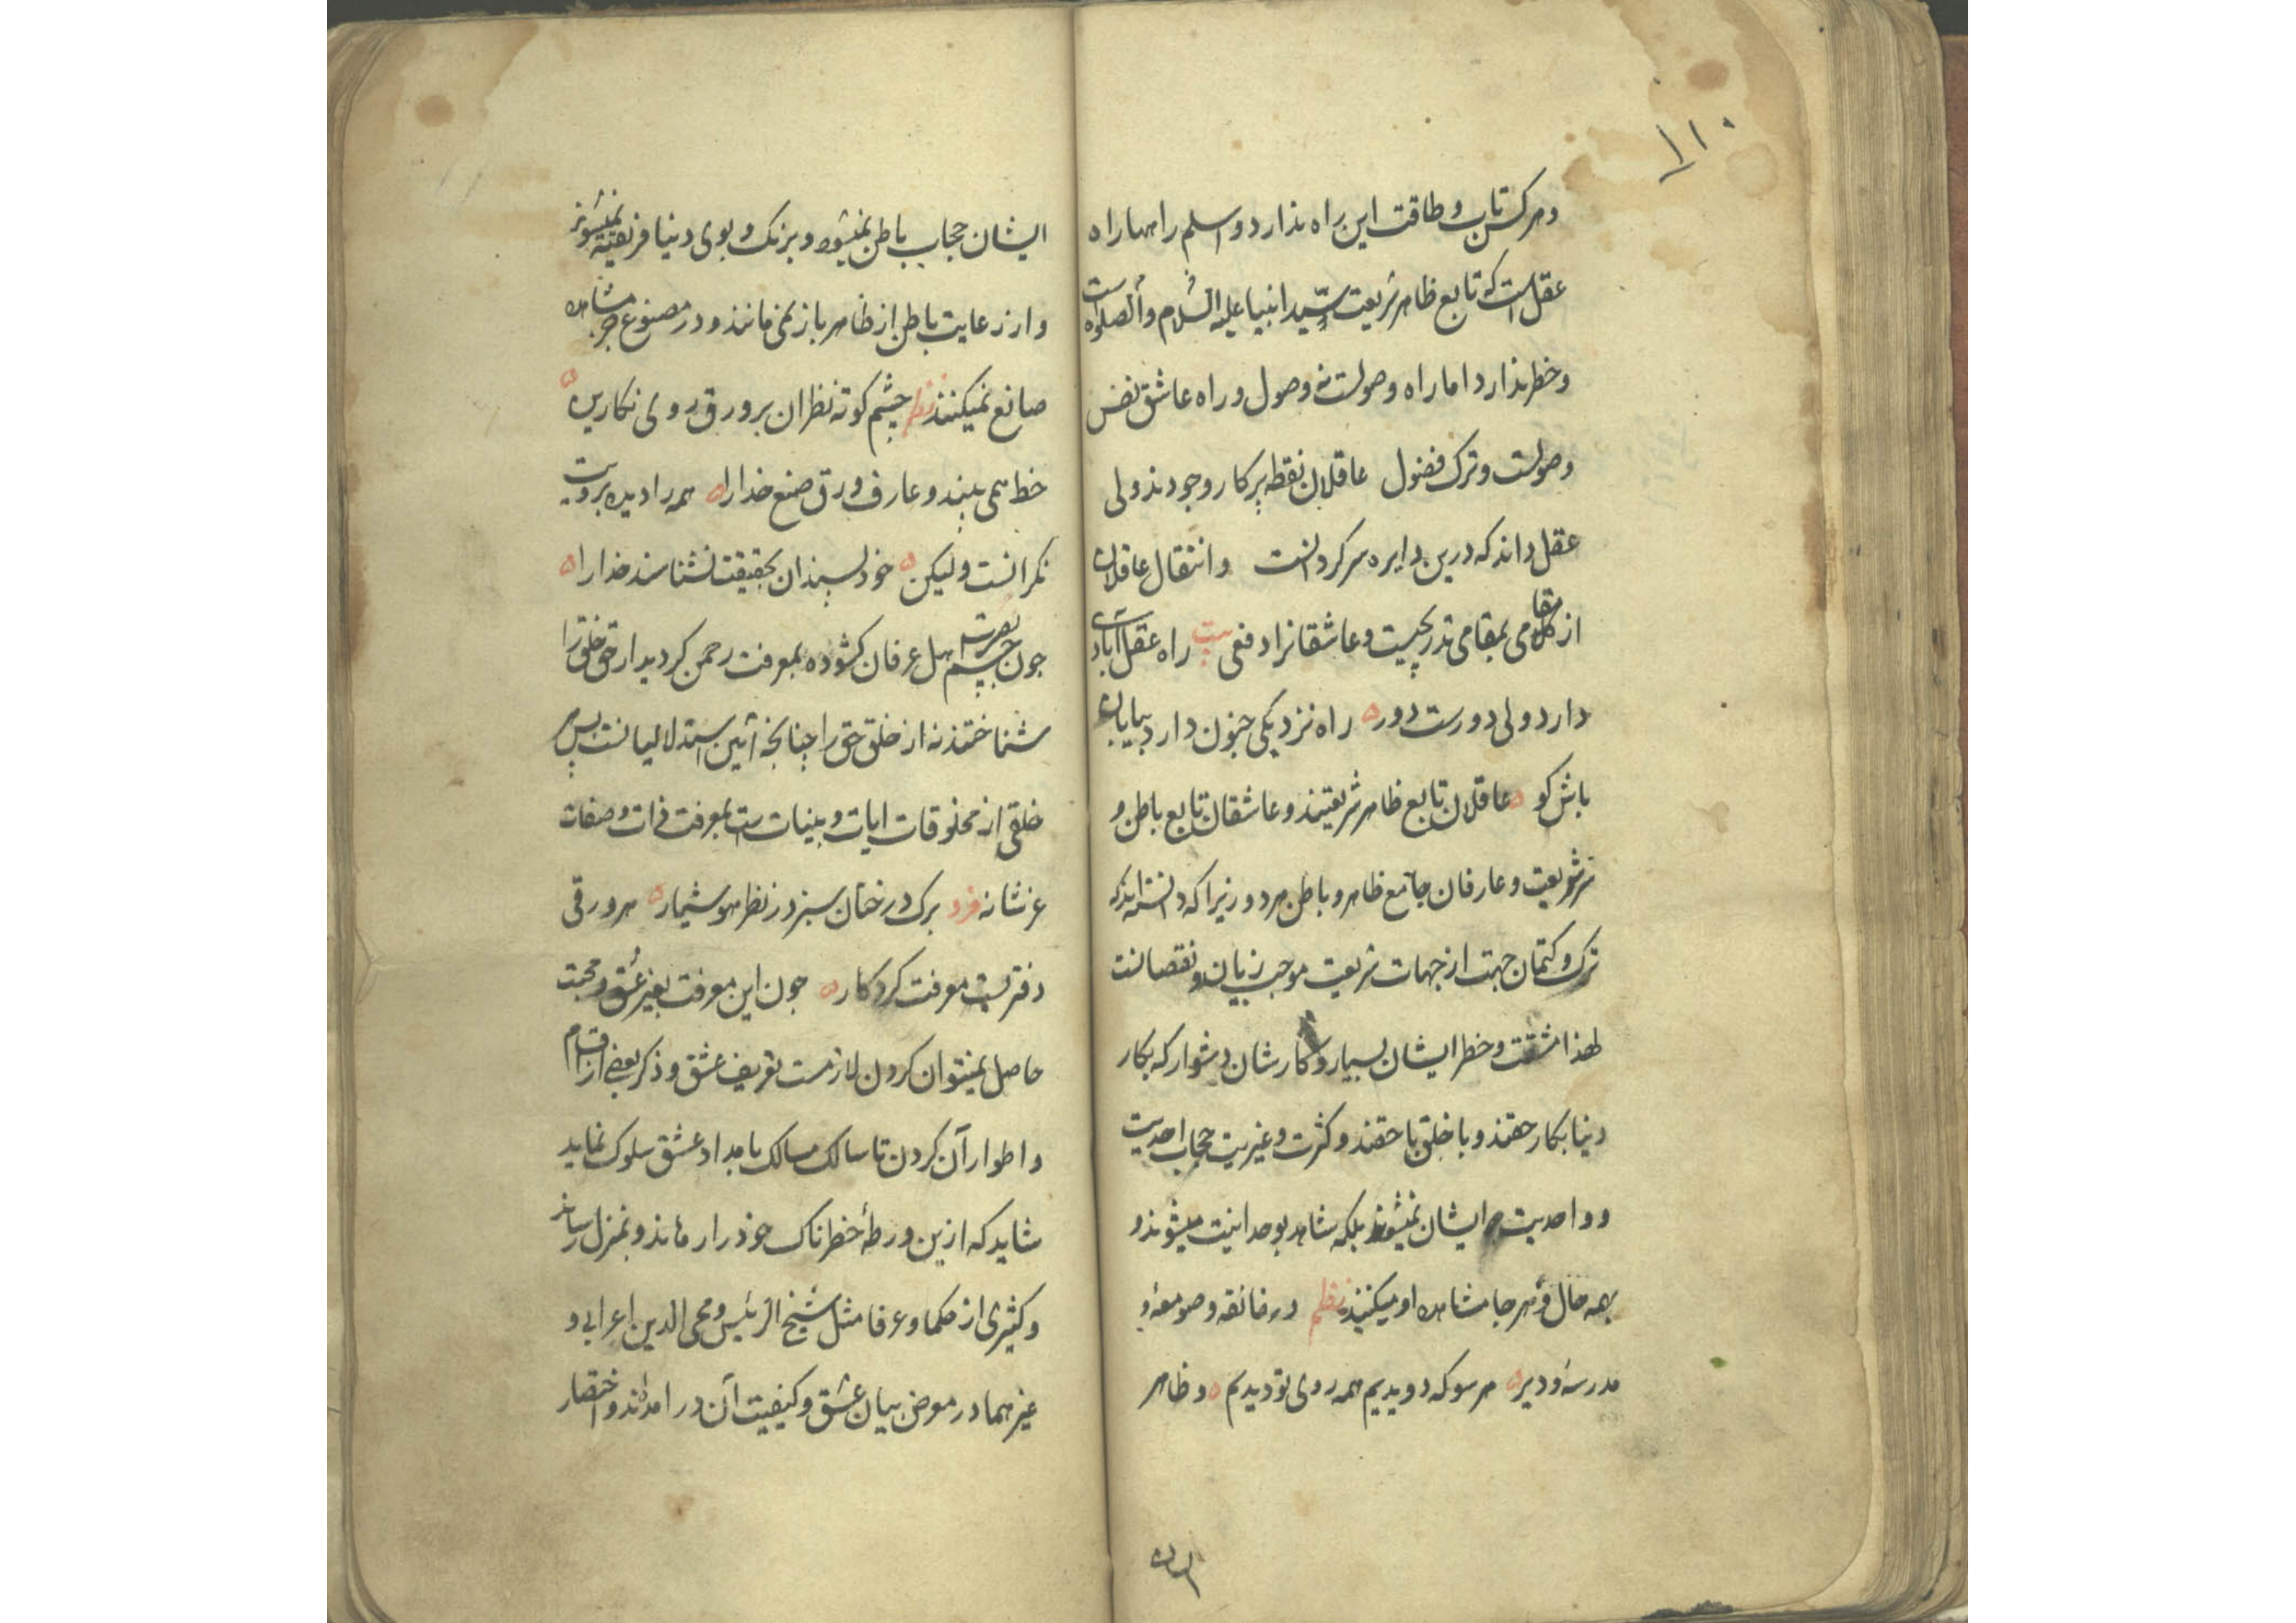 ۱۱۰
و هرکس تاب و طاقت این راه ندارد و اسلم راهها راه
عقل است که تابع ظاهر شریعت سید انبیا علیه السلام و الصلواة است
و خطر ندارد اما راه وصولست نه وصول و راه عاشق نفس
وصولست و ترک فضول عاقلان نقطه پرکار وجودند ولی
عقل داند که درین دایره سرکردانست و انتقال عاقلان
از مقامی بمقامی تدریجیست و عاشقانرا دفعی بیت راه عقل آبادی
دارد ولی دورست دور راه نزدیکی جنون دارد بیابانی
باش کو عاقلان تابع ظاهر شریعتند و عاشقان تابع باطن و
سر شریعت و عارفان جامع ظاهر و باطن هر دو زیرا که دانسته‌اند که
ترک و کتمان جهت از جهات شریعت موجب زیان و نقصانست
لهذا مشقت و خطر ایشان بسیار و کارشان دشوار که بکار
دنیا بکار حقند و با خلق با حقند و کثرت و غیریت حجاب احدیت
و واحدیت ایشان نمیشوند بلکه شاهد بوحدانیت میشوند و
بهمه حال و هر جا مشاهده او میکنند نظم در خانقه و صومعه و
مدرسه و دیر هر سو که دویدیم همه روی تو دیدیم و ظاهر
ایشان حجاب باطن نمیشود و برنک و بوی دنیا فریفته نمیشوند
و از رعایت باطن از ظاهر باز نمی‌مانند و در مصنوع جز مشاهده
صانع نمیکنند نظم چشم کوته نظران بر ورق روی نکارین
خط همی بیند و عارف ورق صنع خدا را همه را دیده برویت
نکرانست ولیکن خود پسندان بحقیقت نشناسند خدا را
چون چشم بصیرت اهل عرفان کشوده بمعرفت رحمن کردید از حق خلق را
شناختند نه از خلق حق را چنانچه آئین استدلالیانست پس
خلقی از مخلوقات ایات و بینات است بمعرفت ذات و صفات
عز شانه فرد برک درختان سبز در نظر هوشیار هر ورقی
دفتریست معرفت کردکار چون این معرفت بغیر عشق و محبت
حاصل نمیتوان کردن لازمست تعریف عشق و ذکر بعضی از اقسام
و اطوار آن کردن تا سالک مسالک بامداد عشق سلوک نماید
شاید که ازین ورطهٔ خطرناک خود را رهاند و بمنزل رساند
و کثیری از حکما و عرفا مثل شیخ الرئیس و محی الدین اعرابی و
غیرهما در معرض بیان عشق و کیفیت آن در امده‌اند و اختصار